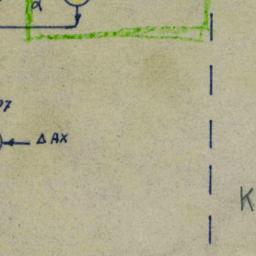 α
Δ AX
K